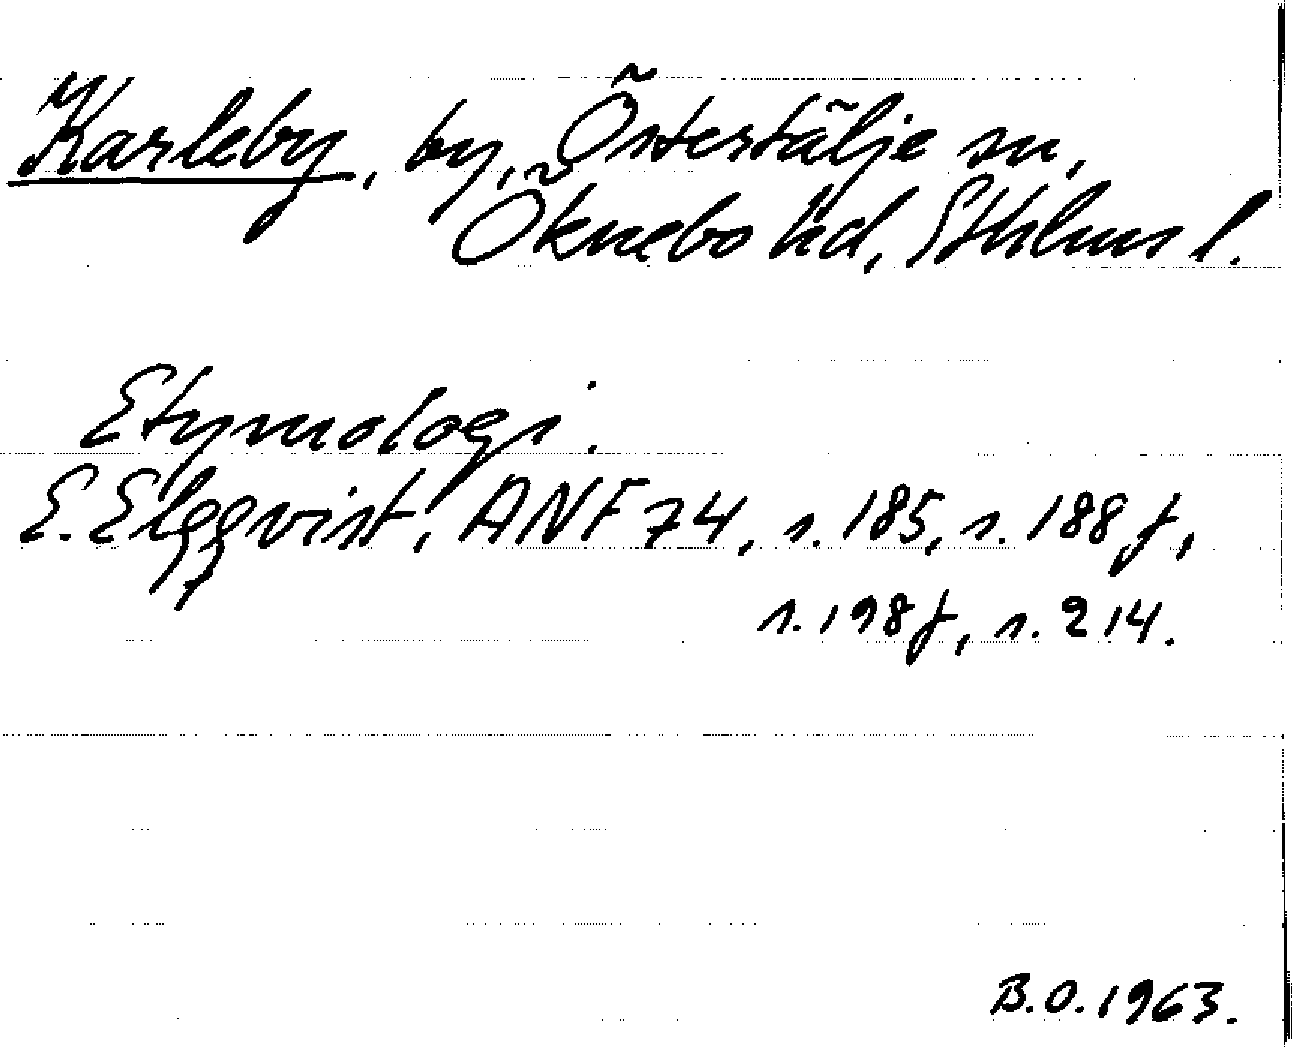 Karleby, by, Östertälje sn,
Öknebo hd, Sthlms l.
Etymologi.
E. Elgqvist, ANF 74, s. 185, s. 188 f,
s. 198 f, s. 214.
B.O. 1963.